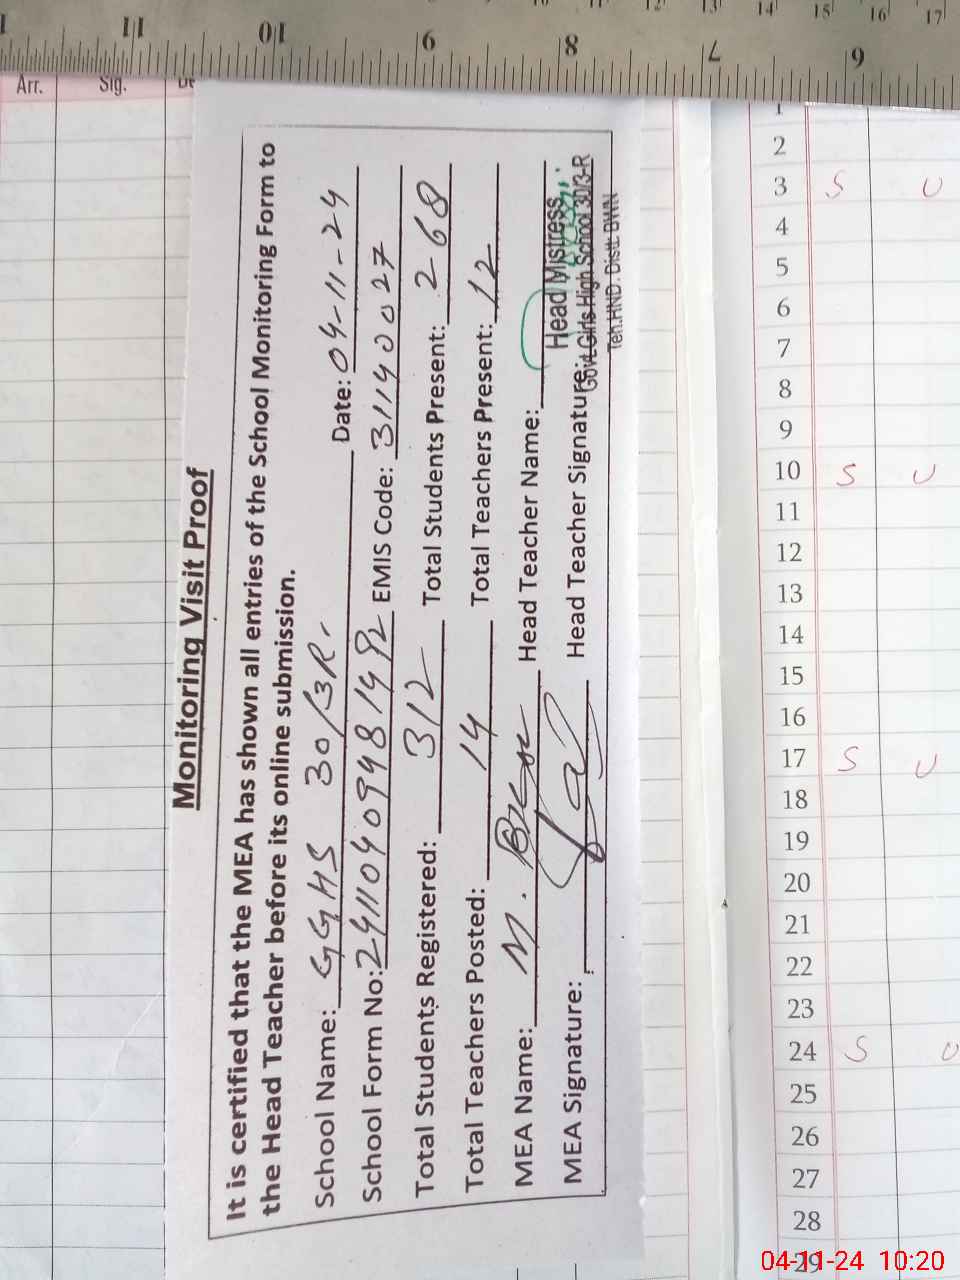 Monitoring Visit Proof
It is certified that the MEA has shown all entries of the School Monitoring Form to
the Head Teacher before its online submission.
School Name: GGHS 30/3R. Date: 04-11-24
School Form No: 241104094819492 EMIS Code: 31140027
Total Students Registered: 312 Total Students Present: 268
Total Teachers Posted: 14 Total Teachers Present: 12
MEA Name: M. Head Teacher Name:
MEA Signature: Head Teacher Signature:
Head Mistress
Govt. Girls High School 30/3-R
Teh. HND. Distt. BWN
Arr. Sig.
11 10 9 8 7 6
12 13 14 15 16 17
1
2
3 S U
4
5
6
7
8
9
10 S U
11
12
13
14
15
16
17 S U
18
19
20
21
22
23
24 S U
25
26
27
28
29
04-11-24 10:20